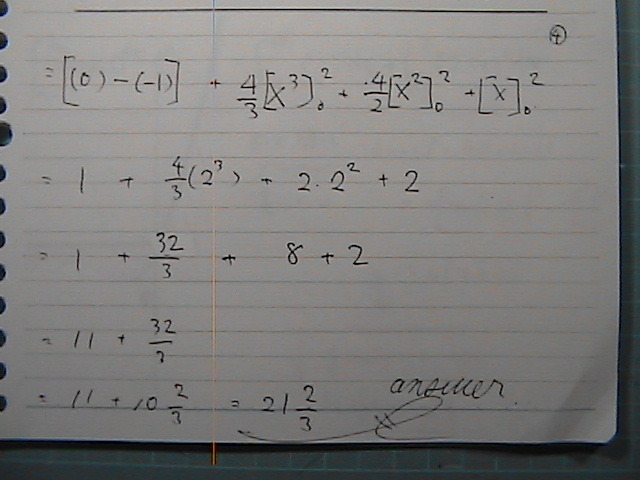 ④
= [(0) - (-1)] + 4/3 [x³]₀² + 4/2 [x²]₀² + [x]₀²
= 1 + 4/3 (2³) + 2 · 2² + 2
= 1 + 32/3 + 8 + 2
= 11 + 32/3
= 11 + 10 2/3 = 21 2/3 answer.